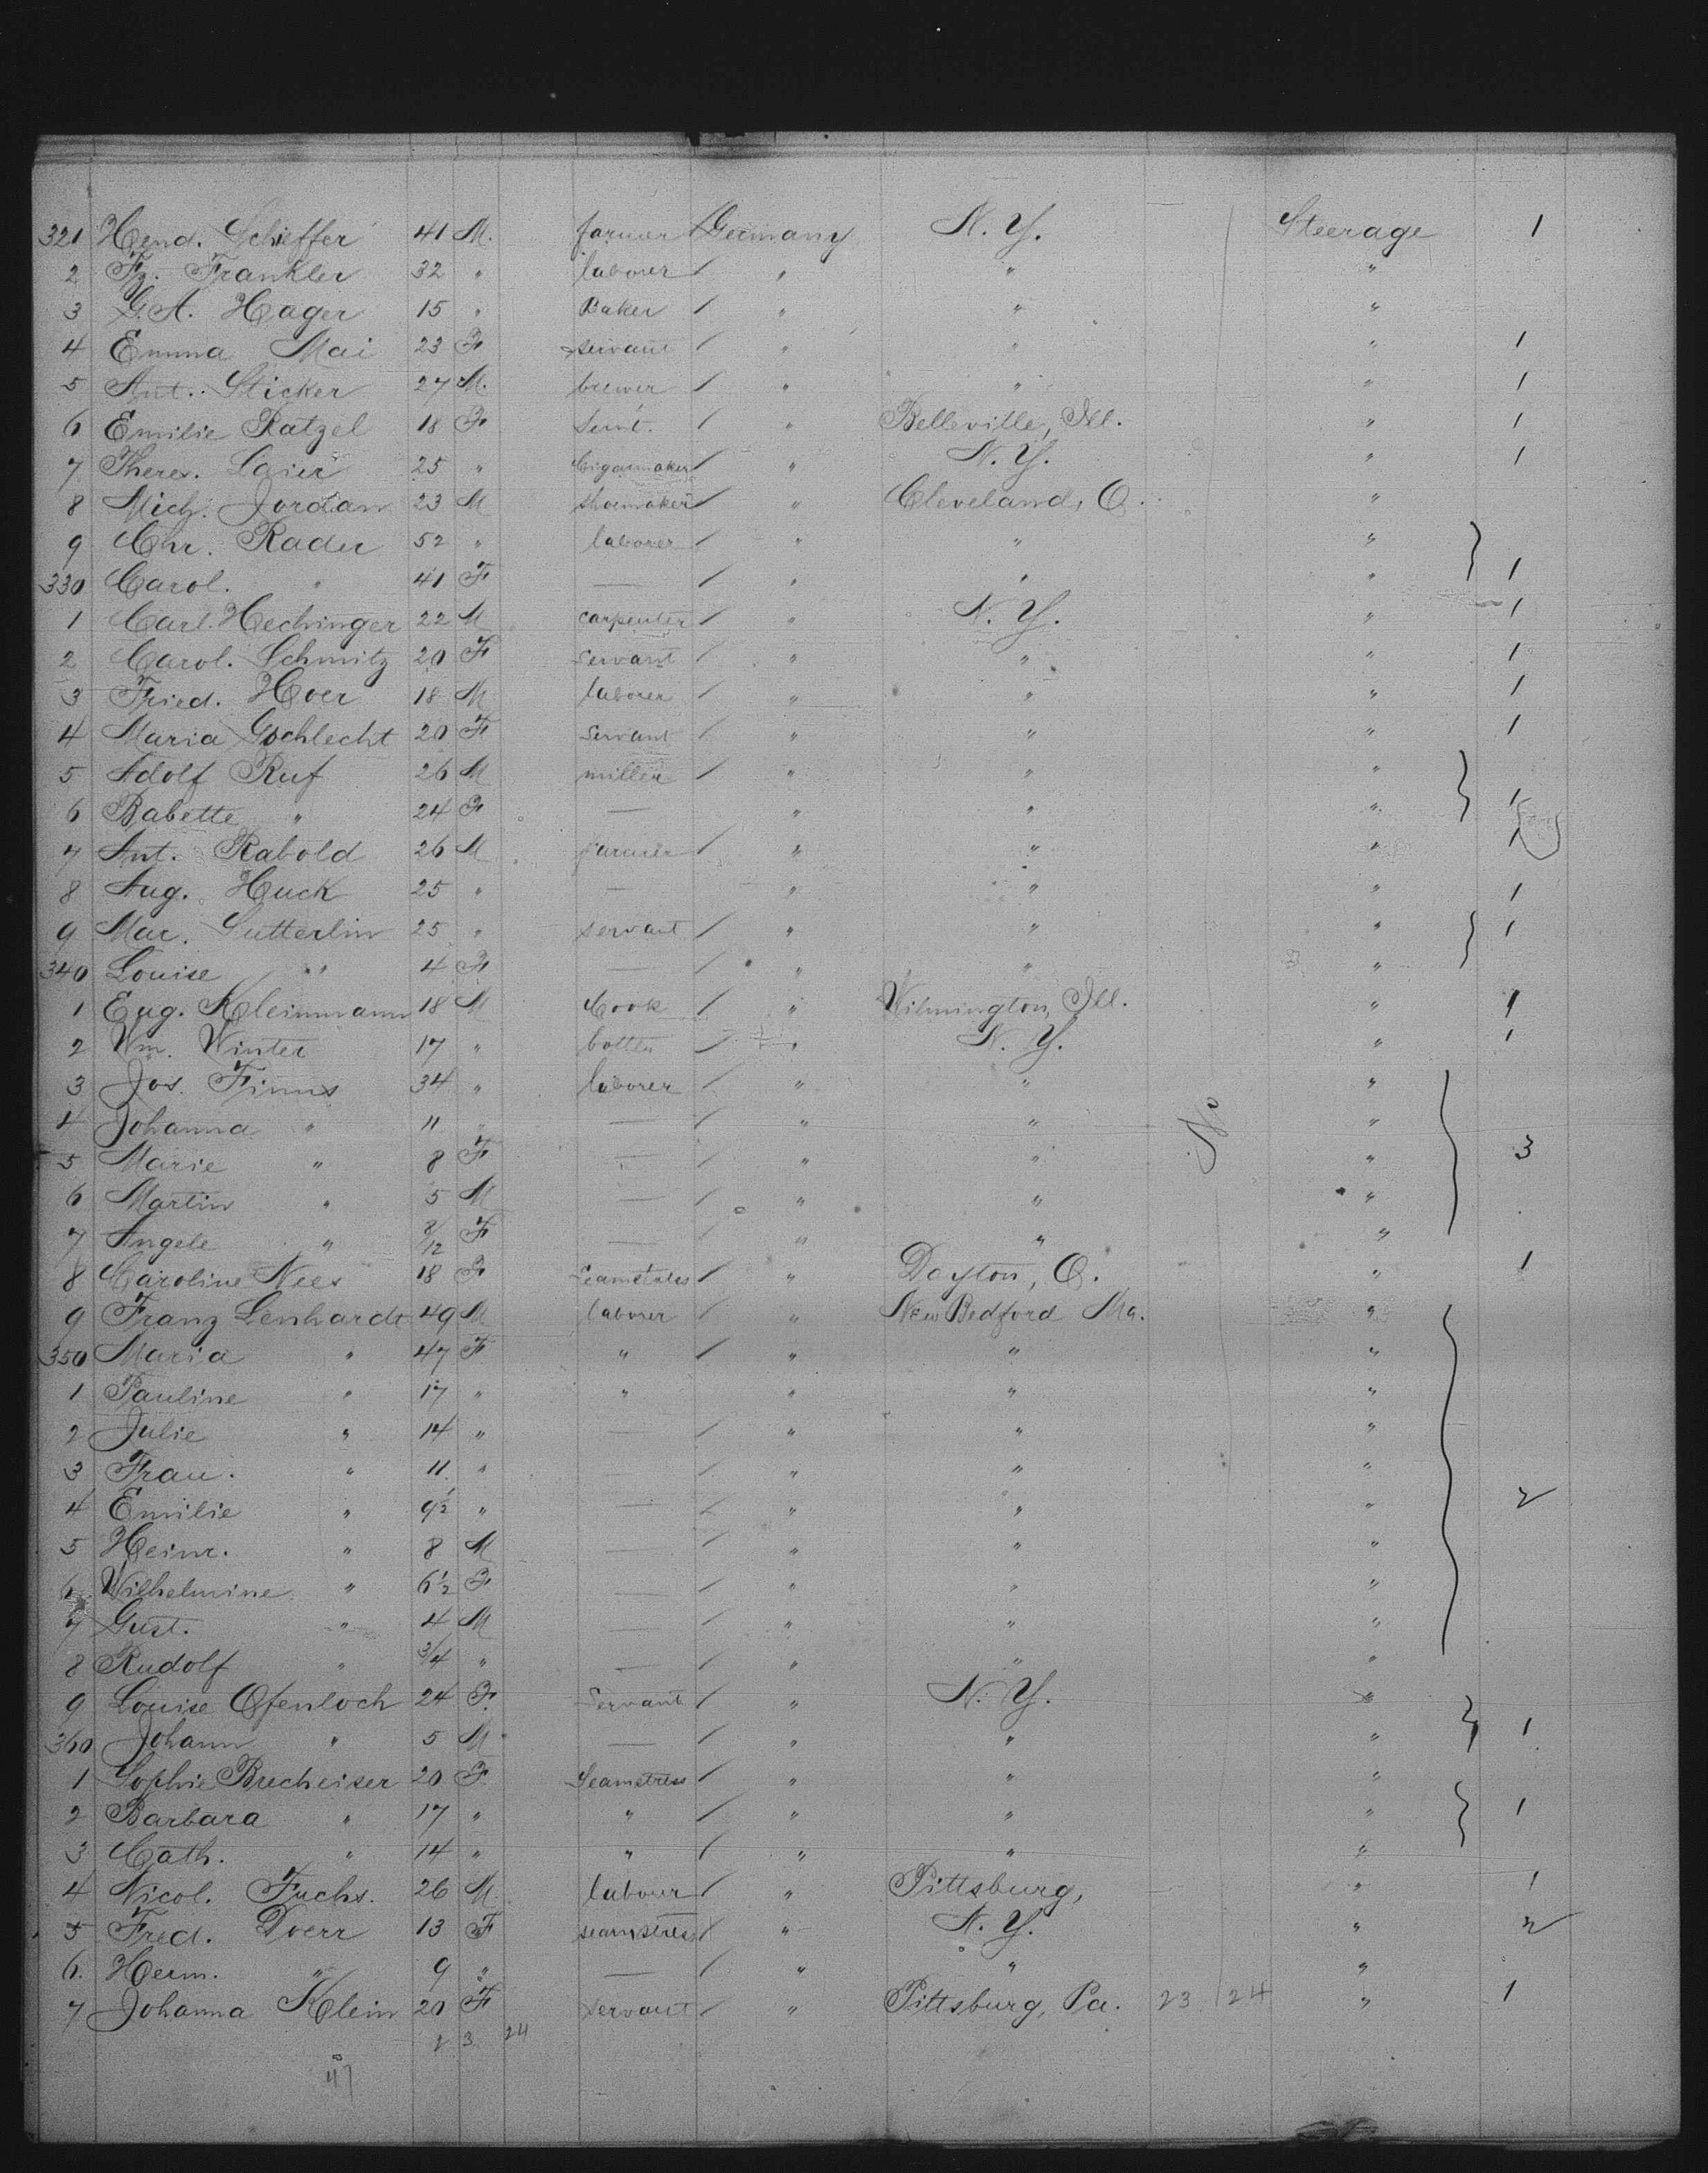 321 Hend. Schieffer 41 M. farmer / Germany N. Y. Steerage 1
2 Fz. Frankler 32 " labourer / " " "
3 G. A. Hager 15 " Baker / " " "
4 Emma Mai 23 F servant / " " " 1
5 Ant. Sticker 27 M. brewer / " " " 1
6 Emilie Ratzel 18 F Sernt. / " Belleville, Ill. " 1
7 Theres. Laier 25 " Cigarmaker / " N. Y. " 1
8 Mich. Jordan 23 M shoemaker / " Cleveland, O. "
9 Chr. Rader 52 " laborer / " " "
330 Carol. " 41 F — / " " " 1
1 Carl. Hechinger 22 M carpenter / " N. Y. " 1
2 Carol. Schmitz 20 F Servant / " " " 1
3 Fried. Hoer 18 M laborer / " " " 1
4 Maria Gschlecht 20 F Servant / " " " 1
5 Adolf Ruf 26 M miller / " " "
6 Babette " 24 F — " " " 1
7 Ant. Rabold 26 M farmer / " " " 1
8 Aug. Huck 25 " — " " " 1
9 Mar. Sutterlin 25 " servant / " " " 1
340 Louise " 4 F — / " " "
1 Eug. Kleinmann 18 M Cook / " Wilmington, Ill. " 1
2 Wm. Winter 17 " / " N. Y. " 1
3 Jos. Finns 34 " laborer / " " "
4 Johanna " 11 " — / " " "
5 Marie " 8 F — / " " No " 3
6 Martin " 5 M — / " " "
7 Angele " 8/12 F — / " " "
8 Caroline Nees 18 F Seamstress / " Dayton, O. " 1
9 Franz Lenhardt 49 M laborer / " New Bedford Ma. "
350 Maria " 47 F " / " " "
1 Pauline " 17 " " " " "
2 Julie " 14 " — / " " "
3 Fran. " 11 " — / " " "
4 Emilie " 9½ " — / " " " 2
5 Heinr. " 8 M — / " " "
6 Wilhelmine " 6½ F — / " " "
7 Gust. " 4 M — / " " "
8 Rudolf " 3/4 " — / " " "
9 Louise Ofenloch 24 F. Servant / " N. Y. "
360 Johann " 5 M — / " " " 1
1 Sophie Brecheiser 20 F. Seamstress / " " "
2 Barbara " 17 " " / " " " 1
3 Cath. " 14 " " / " " "
4 Nicol. Fuchs. 26 M labour / " Pittsburg, " 1
5 Fred. Doerr 13 F seamstress / " N. Y. " 2
6. Herm. " 9 " — / " " "
7 Johanna Klein 20 F servant / " Pittsburg, Pa. 23 / 24 " 1
2 3 24
47